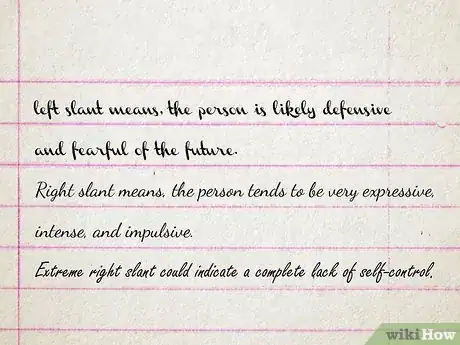 left slant means, the person is likely defensive
and fearful of the future.
Right slant means, the person tends to be very expressive,
intense, and impulsive.
Extreme right slant could indicate a complete lack of self-control.
wikiHow